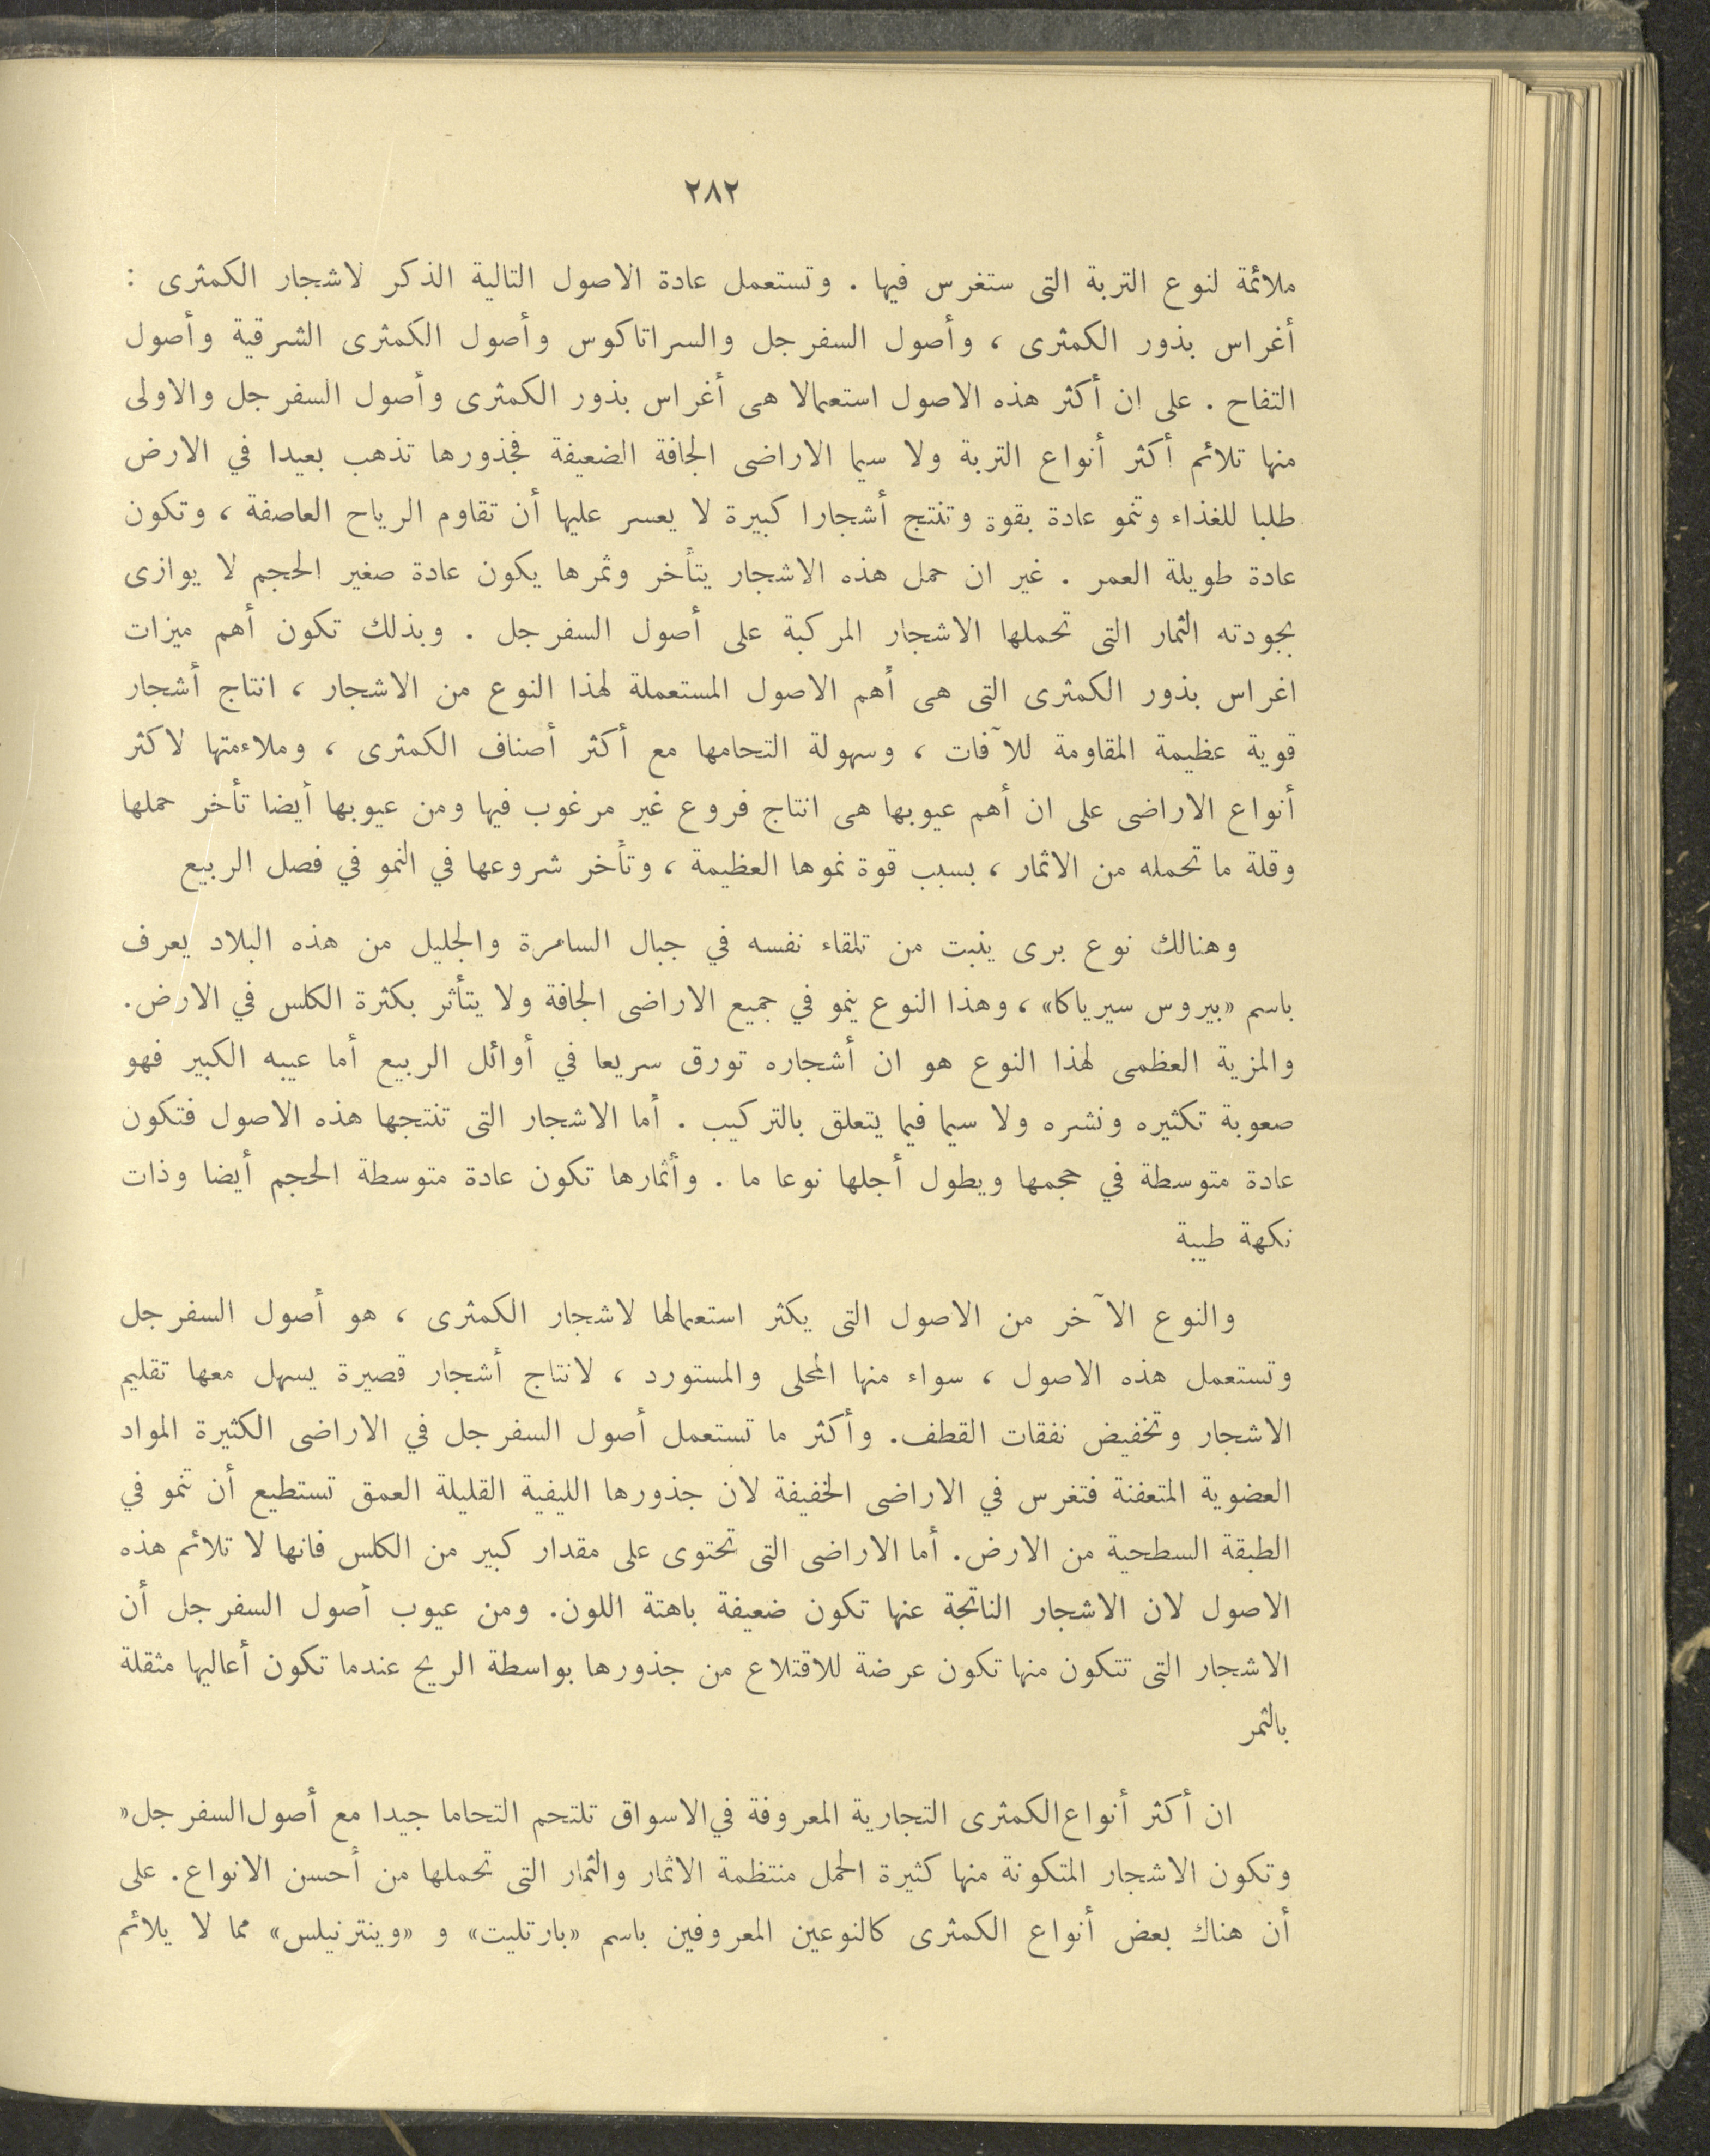 ٢٨٢
ملائمة لنوع التربة التى ستغرس فيها . وتستعمل عادة الاصول التالية الذكر لاشجار الكمثرى :
أغراس بذور الكمثرى ، وأصول السفرجل والسراتاكوس وأصول الكمثرى الشرقية وأصول
التفاح . على ان أكثر هذه الاصول استعمالا هى أغراس بذور الكمثرى وأصول السفرجل والاولى
منها تلائم أكثر أنواع التربة ولا سيما الاراضى الجافة الضعيفة فجذورها تذهب بعيدا في الارض
طلبا للغذاء وتنمو عادة بقوة وتنتج أشجارا كبيرة لا يعسر عليها أن تقاوم الرياح العاصفة ، وتكون
عادة طويلة العمر . غير ان حمل هذه الاشجار يتأخر وثمرها يكون عادة صغير الحجم لا يوازى
بجودته الثمار التى تحملها الاشجار المركبة على أصول السفرجل . وبذلك تكون أهم ميزات
اغراس بذور الكمثرى التى هى أهم الاصول المستعملة لهذا النوع من الاشجار ، انتاج أشجار
قوية عظيمة المقاومة للآفات ، وسهولة التحامها مع أكثر أصناف الكمثرى ، وملاءمتها لاكثر
أنواع الاراضى على ان أهم عيوبها هى انتاج فروع غير مرغوب فيها ومن عيوبها أيضا تأخر حملها
وقلة ما تحمله من الاثمار ، بسبب قوة نموها العظيمة ، وتأخر شروعها في النمو في فصل الربيع
وهنالك نوع برى ينبت من تلقاء نفسه في جبال السامرة والجليل من هذه البلاد يعرف
باسم «بيروس سيرياكا» ، وهذا النوع ينمو في جميع الاراضى الجافة ولا يتأثر بكثرة الكلس في الارض.
والمزية العظمى لهذا النوع هو ان أشجاره تورق سريعا في أوائل الربيع أما عيبه الكبير فهو
صعوبة تكثيره ونشره ولا سيما فيما يتعلق بالتركيب . أما الاشجار التى تنتجها هذه الاصول فتكون
عادة متوسطة في حجمها ويطول أجلها نوعا ما . وأثمارها تكون عادة متوسطة الحجم أيضا وذات
نكهة طيبة
والنوع الآخر من الاصول التى يكثر استعمالها لاشجار الكمثرى ، هو أصول السفرجل
وتستعمل هذه الاصول ، سواء منها المحلى والمستورد ، لانتاج أشجار قصيرة يسهل معها تقليم
الاشجار وتخفيض نفقات القطف. وأكثر ما تستعمل أصول السفرجل في الاراضى الكثيرة المواد
العضوية المتعفنة فتغرس في الاراضى الخفيفة لان جذورها الليفية القليلة العمق تستطيع أن تنمو في
الطبقة السطحية من الارض. أما الاراضى التى تحتوى على مقدار كبير من الكلس فانها لا تلائم هذه
الاصول لان الاشجار الناتجة عنها تكون ضعيفة باهتة اللون. ومن عيوب أصول السفرجل أن
الاشجار التى تتكون منها تكون عرضة للاقتلاع من جذورها بواسطة الريح عندما تكون أعاليها مثقلة
بالثمر
ان أكثر أنواع الكمثرى التجارية المعروفة في الاسواق تلتحم التحاما جيدا مع أصول السفرجل«
وتكون الاشجار المتكونة منها كثيرة الحمل منتظمة الاثمار والثمار التى تحملها من أحسن الانواع. على
أن هناك بعض أنواع الكمثرى كالنوعين المعروفين باسم «بارتليت» و «وينترنيلس» مما لا يلائم